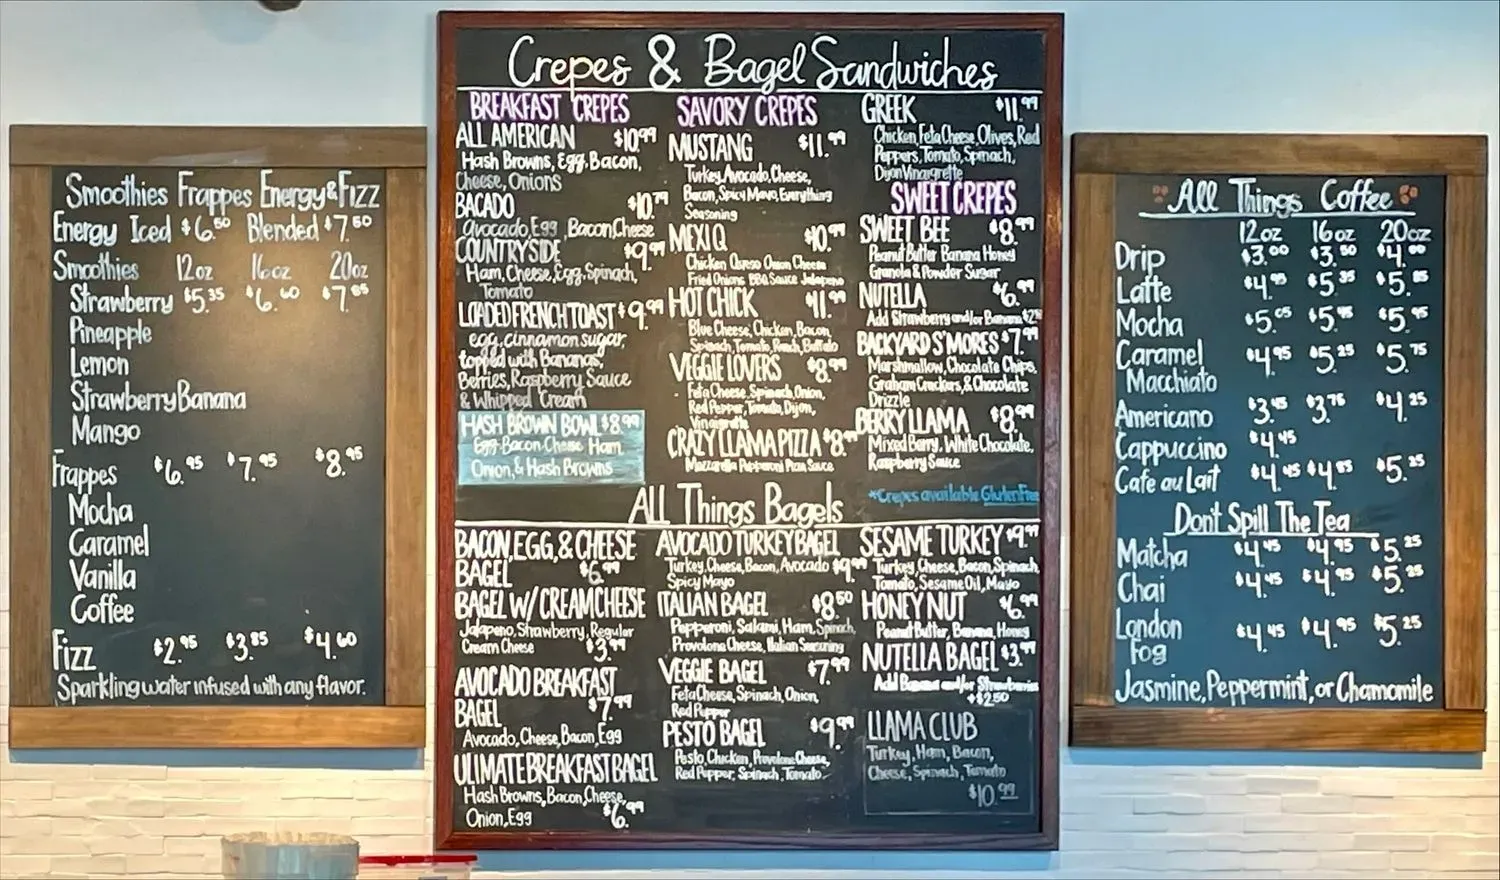 Smoothies Frappes Energy & Fizz
Energy Iced $6.50 Blended $7.50
Smoothies 12oz 16oz 20oz
Strawberry $5.35 $6.60 $7.85
Pineapple
Lemon
Strawberry Banana
Mango
Frappes $6.95 $7.95 $8.95
Mocha
Caramel
Vanilla
Coffee
Fizz $2.95 $3.85 $4.60
Sparkling water infused with any flavor.
Crepes & Bagel Sandwiches
BREAKFAST CREPES
ALL AMERICAN $10.99
Hash Browns, Egg, Bacon,
Cheese, Onions
BACADO $10.79
Avocado, Egg, Bacon, Cheese
COUNTRYSIDE $9.99
Ham, Cheese, Egg, Spinach,
Tomato
LOADED FRENCH TOAST $9.99
egg, cinnamon sugar,
topped with Bananas,
Berries, Raspberry Sauce
& Whipped Cream
HASH BROWN BOWL $8.99
Egg-Bacon-Cheese Ham
Onion, & Hash Browns
SAVORY CREPES
MUSTANG $11.99
Turkey, Avocado, Cheese,
Bacon, Spicy Mayo, Everything
Seasoning
MEXI Q $10.99
Chicken Queso Onion Cheese
Fried Onions BBQ Sauce Jalapeno
HOT CHICK $11.99
Blue Cheese, Chicken, Bacon,
Spinach, Tomato, Ranch, Buffalo
VEGGIE LOVERS $8.99
Feta Cheese, Spinach, Onion,
Red Pepper, Tomato, Dijon,
Vinaigrette
CRAZY LLAMA PIZZA $8.99
Mozzarella Pepperoni Pizza Sauce
GREEK $11.99
Chicken, Feta Cheese, Olives, Red
Peppers, Tomato, Spinach,
Dijon Vinaigrette
SWEET CREPES
SWEET BEE $8.99
Peanut Butter Banana Honey
Granola & Powder Sugar
NUTELLA $6.99
Add Strawberry and/or Banana
BACKYARD S'MORES $7.99
Marshmallow, Chocolate Chips,
Graham Crackers, & Chocolate
Drizzle
BERRY LLAMA $8.99
Mixed Berry, White Chocolate,
Raspberry Sauce
*Crepes available Gluten Free
ALL Things Bagels
BACON, EGG, & CHEESE
BAGEL $6.99
BAGEL W/ CREAM CHEESE
Jalapeno, Strawberry, Regular
Cream Cheese $3.99
AVOCADO BREAKFAST
BAGEL $7.99
Avocado, Cheese, Bacon, Egg
ULIMATE BREAKFAST BAGEL
Hash Browns, Bacon, Cheese,
Onion, Egg $6.99
AVOCADO TURKEY BAGEL
Turkey, Cheese, Bacon, Avocado $9.99
Spicy Mayo
ITALIAN BAGEL $8.50
Pepperoni, Salami, Ham, Spinach,
Provolone Cheese, Italian Seasoning
VEGGIE BAGEL $7.99
Feta Cheese, Spinach, Onion,
Red Pepper
PESTO BAGEL $9.99
Pesto, Chicken, Provolone Cheese,
Red Pepper, Spinach, Tomato
SESAME TURKEY $9.99
Turkey, Cheese, Bacon, Spinach,
Tomato, Sesame Oil, Mayo
HONEY NUT $6.99
Peanut Butter, Banana, Honey
NUTELLA BAGEL $3.99
Add Banana and/or Strawberries
+$2.50
LLAMA CLUB
Turkey, Ham, Bacon,
Cheese, Spinach, Tomato
$10.99
All Things Coffee
12oz 16oz 20oz
Drip $3.00 $3.50 $4.00
Latte $4.95 $5.35 $5.85
Mocha $5.05 $5.45 $5.95
Caramel $4.95 $5.25 $5.75
Macchiato
Americano $3.45 $3.75 $4.25
Cappuccino $4.45
Cafe au Lait $4.45 $4.85 $5.25
Don't Spill The Tea
Matcha $4.45 $4.95 $5.25
Chai $4.45 $4.95 $5.25
London $4.45 $4.95 $5.25
Fog
Jasmine, Peppermint, or Chamomile